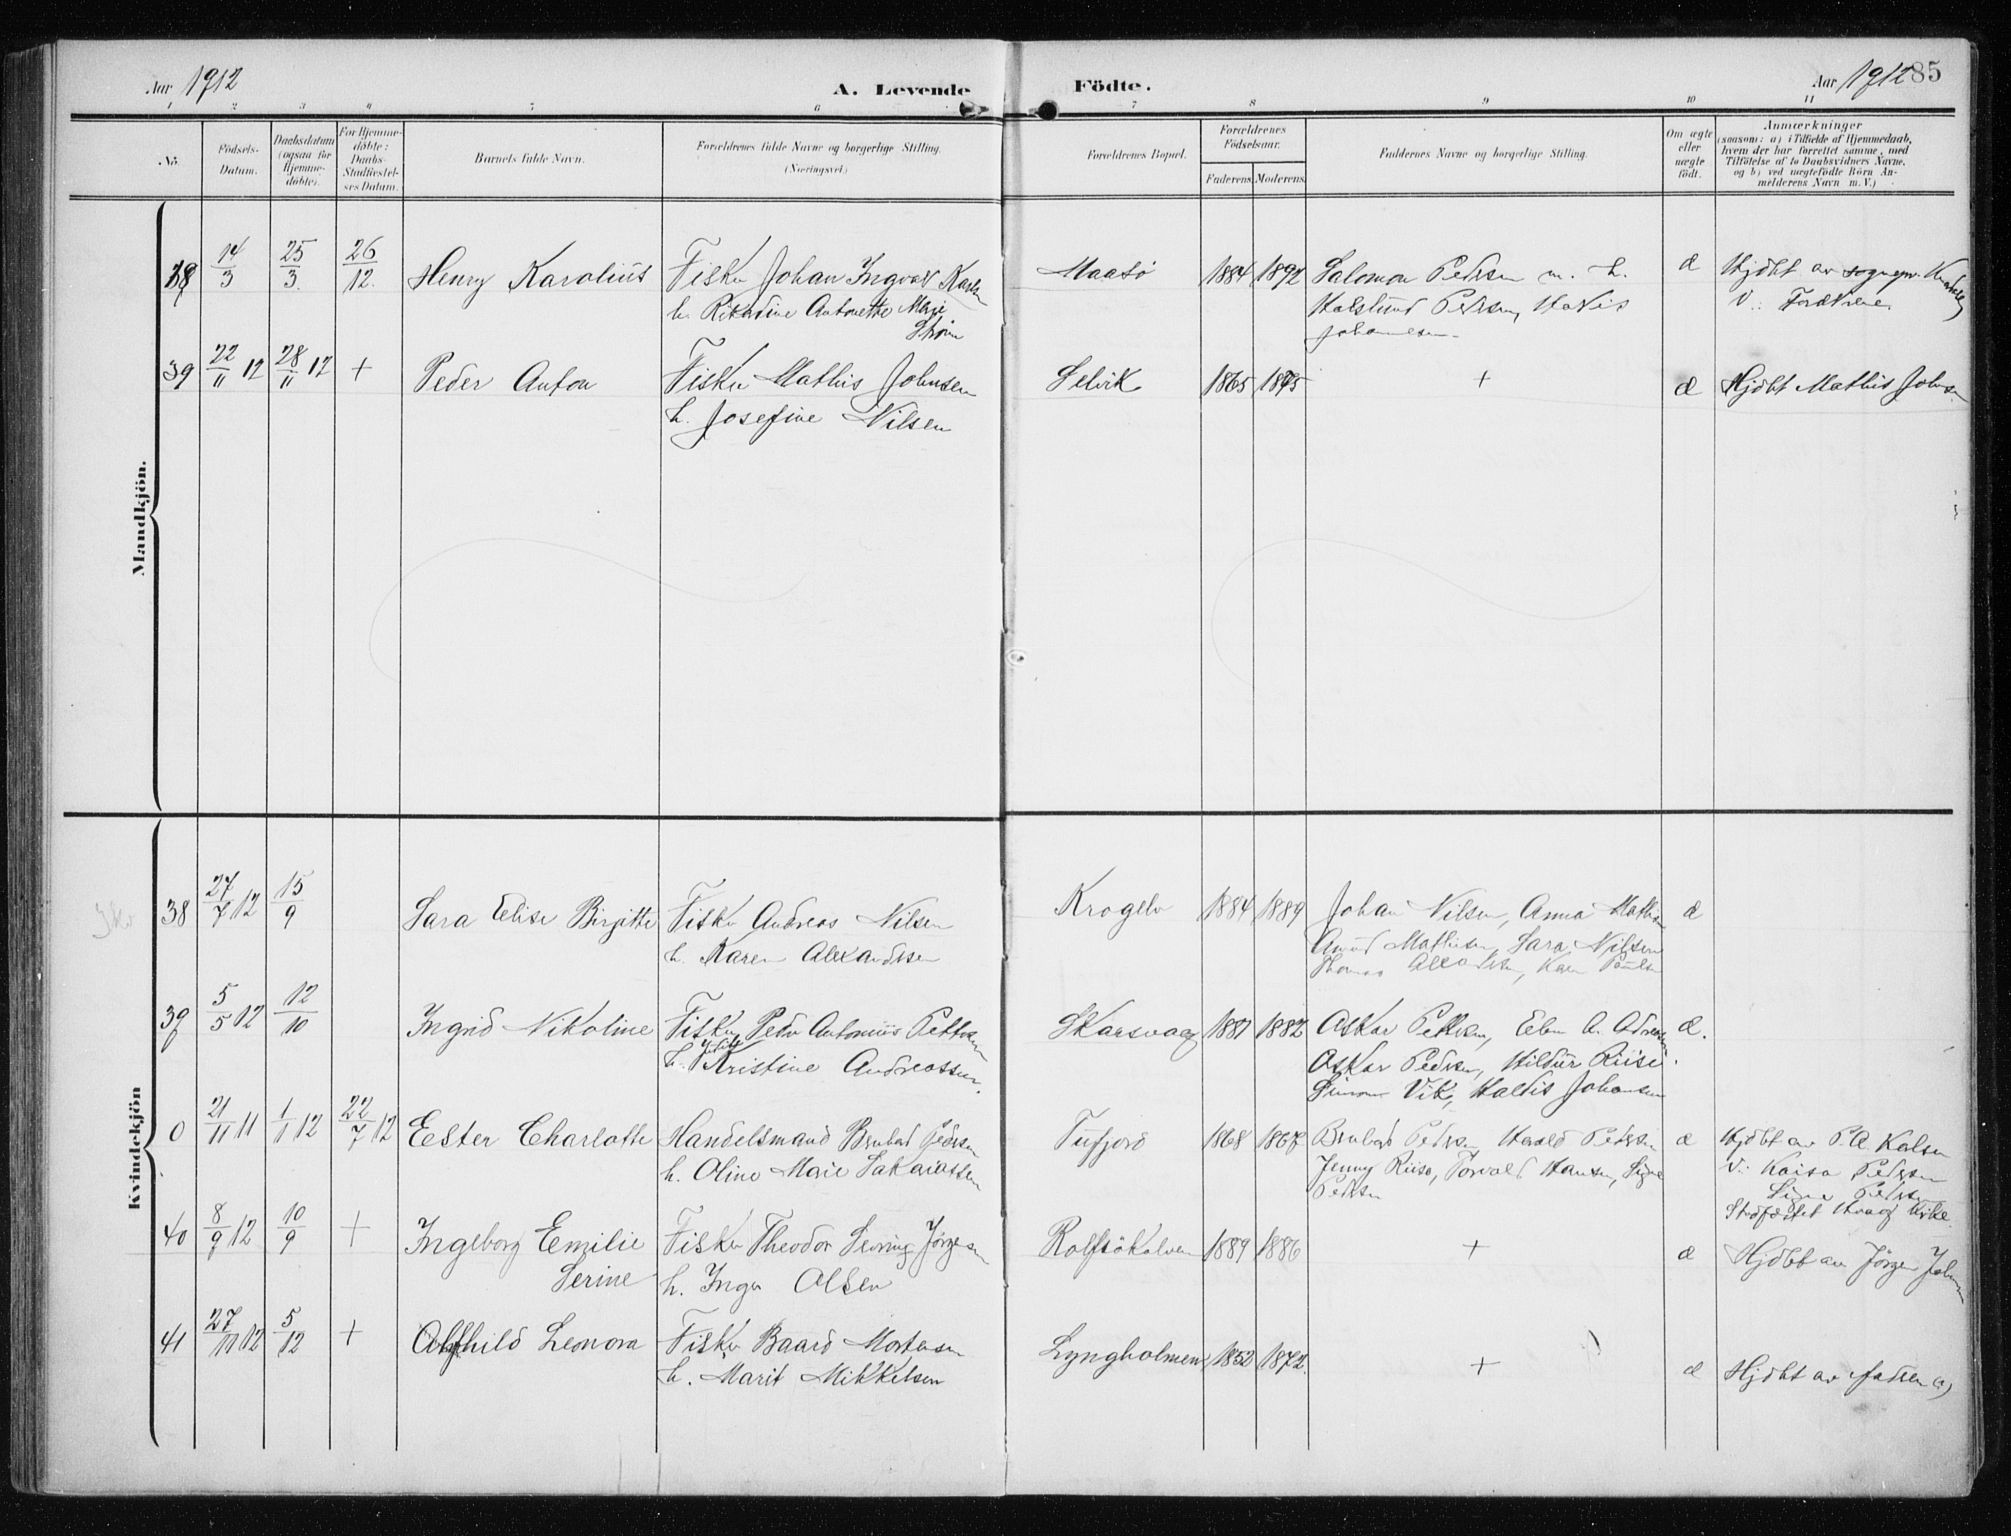 Aar 1912
A. Levende
Födte.
Aar 1912
85
1 2 3 4 5 6 7 8 9 10 11
No.
Födsels-
Datum.
Daabsdatum
(ogsaa for
Hjemme-
döbte).
For Hjemme-
döbte:
Daabs-
Stadfæstel-
ses Datum.
Barnets fulde Navn.
Forældrenes fulde Navne og borgerlige Stilling.
(Næringsvei)
Forældrenes Bopæl.
Forældrenes
Födselsaar.
Faderens. Moderens.
Faddernes Navne og borgerlige Stilling.
Om ægte
eller
uægte
födt.
Anmærkninger
(saasom: a) i Tilfælde af Hjemmedaab,
hvem der har forrettet samme, med
Tilföielse af to Daabsvidners Navne.
og b) ved uægtefödte Börn An-
melderens Navn m. V.)
Mandkjön.
38 14/3 25/3. 26/12. Henry Karolius Fisker Johan Ingvall Karlsen Maasö 1884 1892 Salomon Pedersen m. h. æ Hjdbt av sognepr.
h. Rikardine Antonette Marie Halstund Pedersen, v.: Forældrene
Ström Johannesen
39 22/11 12 28/11 12 + Peder Anton Fisker Mathis Johnsen Selvik 1865 1875 + æ Hjdbt Mathis Johnsen
h. Josefine Nilsen
Kvindekjön
38 27/7 12 15/9 Sara Elise Birgitte Fisker Andreas Nilsen Krogelv 1884 1889 Johan Nilsen, Anna Mathisen æ
h. Karen Alexandersen Mathisen, Sara Nilsen
Thomas Alexandersen, Karen
39 5/5 12 12/10 Ingrid Nikoline Fisker Peder Antonius Pettersen Skarsvaag 1881 1882 Oskar Pettersen, æ.
h. Kristine Andreassen. Oskar Pedersen, Hildur Riise.
Simon Vik, Haldis Johansen
0 21/11 11 1/1 12 22/7 12 Ester Charlotte Handelsmand Pedersen Tufjord 1868 1867 Pedersen, Harald Pedersen æ Hjdbt av P.A. Kalsen
h. Oline Marie Sakariassen Jenny Riise, Torvald Hansen, Signe v.: Kaisa Pedersen
Pedersen Signe Pedersen
Stadfæstet Kirke.
40 8/9 12 10/9 + Ingeborg Emilie Fisker Theodor Jörgensen Rolfsökalven 1889 1886 + æ Hjdbt av Jörgen
Serine h. Inga Olsen
41 27/11 12 5/12 + Alfhild Leonora Fisker Baard Mortensen Lyngholmen 1852 1872. + æ Hjdbt av faderen
h. Marit Mikkelsen